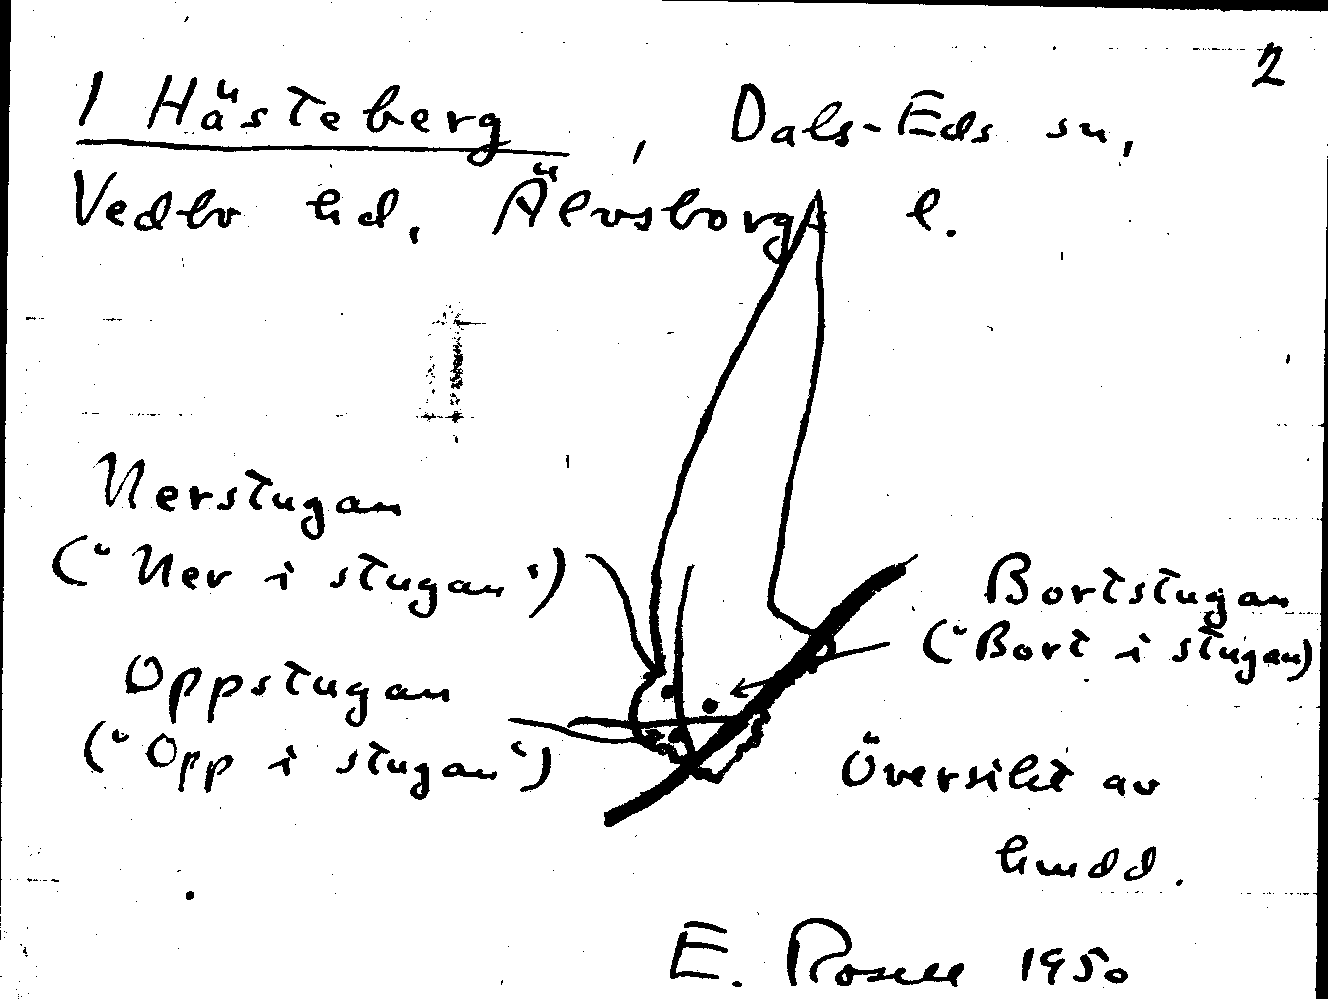 2
1 Hästeberg, Dals-Eds sn,
Vedbo hd, Älvsborgs l.
Nerstugan
("Ner i stugan")
Oppstugan
("Opp i stugan")
Bortstugan
("Bort i stugan)
Översikt av
hmdd.
E. Rosell 1950